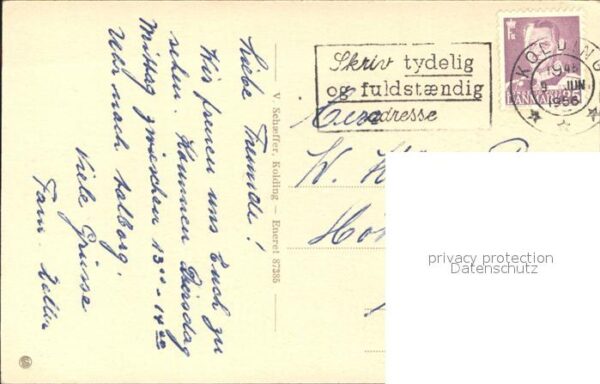 Liebe Freunde!
Wir freuen uns Euch zu
sehen. Kommen Dirsdag
Mittag zwischen 13⁰⁰ - 14⁰⁰
Uhr nach Aalborg.
Viele Grüsse
Fam.
V. Schæffer, Kolding — Eneret 87385
Skriv tydelig
og fuldstændig
adresse
KOLDING
1956
DANMARK 25
W.
privacy protection
Datenschutz